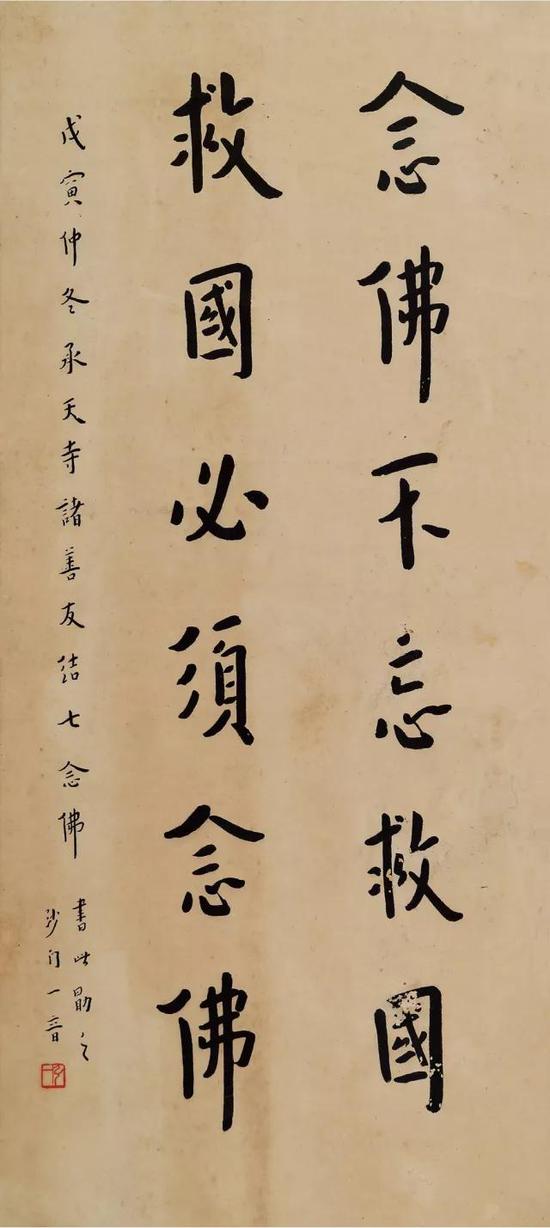 念佛不忘救國
救國必須念佛
戊寅仲冬承天寺諸善友結七念佛
書此勖之
沙門一音